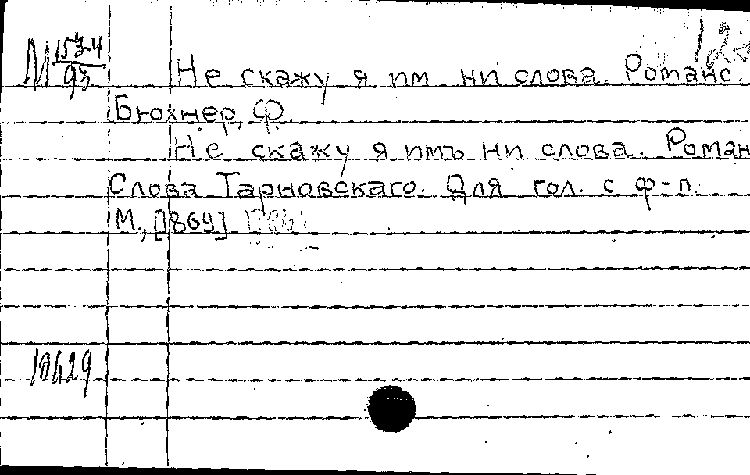 М 1534/93 Не скажу я им ни слова. Романс.
Бюхнер, Ф.
Не скажу я имъ ни слова. Роман
Слова Тарновскаго. Для гол. с ф-п.
М., [1864]